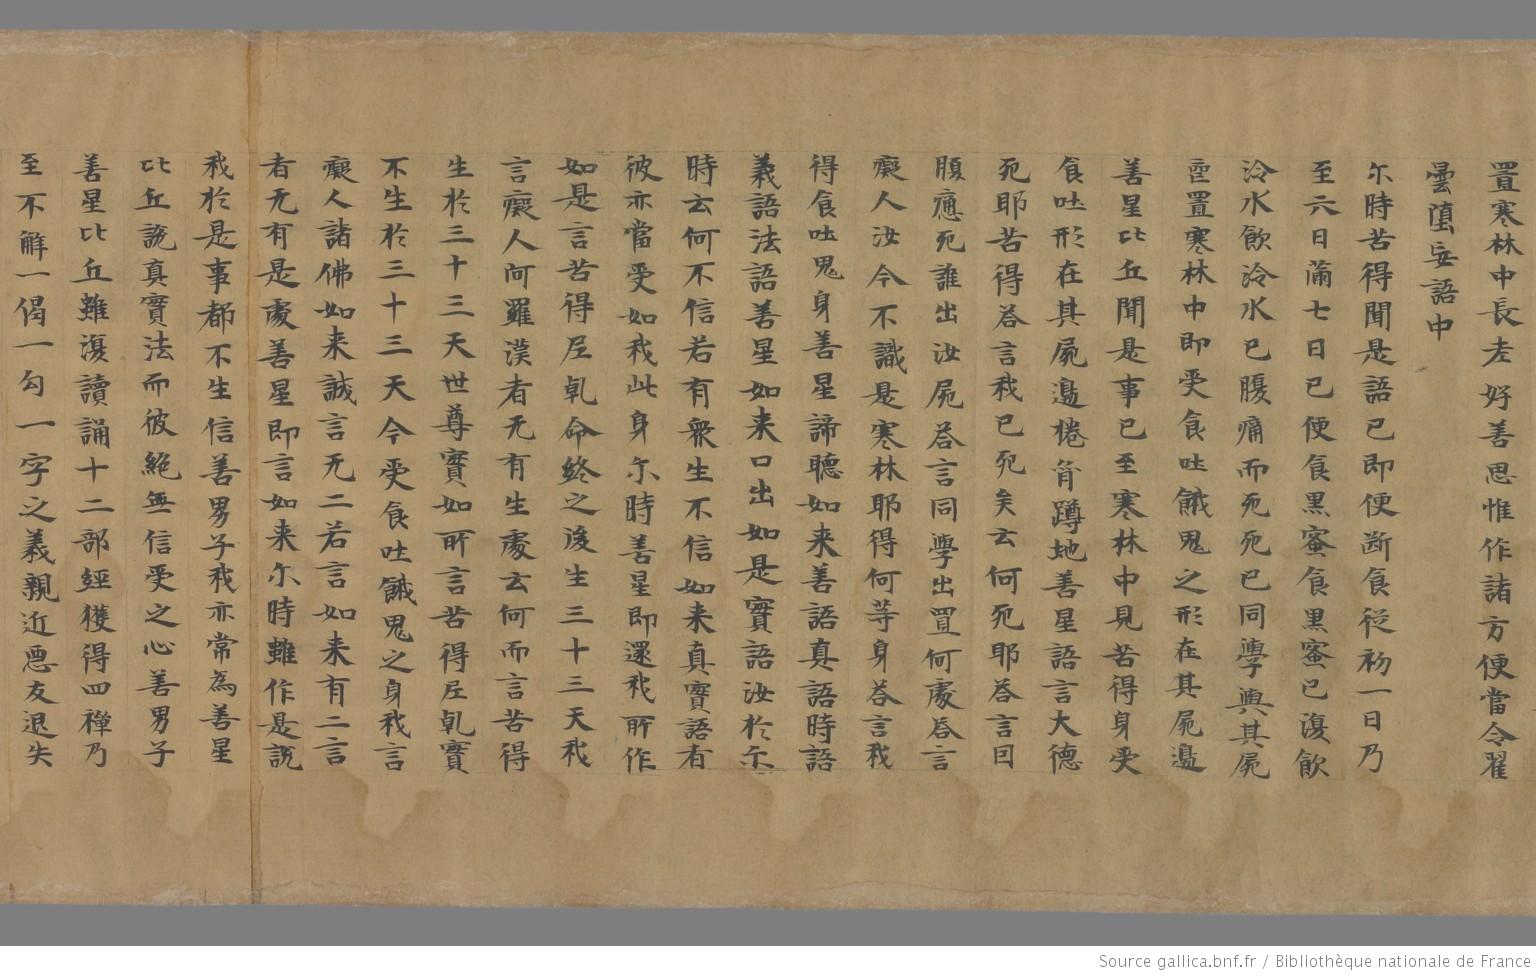 置寒林中長老好善思惟作諸方便當令瞿
曇墮妄語中
尒時苦得聞是語已即便断食從初一日乃
至六日滿七日已便食黒蜜食黒蜜已復飲
泠水飲泠水已腹痛而死死已同學輿其屍
置寒林中即受食吐餓鬼之形在其屍邊
善星比丘聞是事已至寒林中見苦得身受
食吐形在其屍邊棬脊蹲地善星語言大德
死耶苦得荅言我已死矣云何死耶荅言曰
腹痛死誰出汝屍荅言同學出置何處荅言
癡人汝今不識是寒林耶得何等身荅言我
得食吐鬼身善星諦聽如来善語真語時語
義語法語善星如来口出如是實語汝於尒
時云何不信若有衆生不信如来真實語者
彼亦當受如我此身尒時善星即還我所作
如是言苦得尼乹命終之後生三十三天我
言癡人阿羅漢者无有生處云何而言苦得
生於三十三天世尊實如所言苦得尼乹實
不生於三十三天今受食吐餓鬼之身我言
癡人諸佛如来誠言无二若言如来有二言
者无有是處善星即言如来尒時雖作是說
我於是事都不生信善男子我亦常為善星
比丘說真實法而彼絶無信受之心善男子
善星比丘雖復讀誦十二部經獲得四禪乃
至不解一偈一勾一字之義親近悪友退失
Source gallica.bnf.fr / Bibliothèque nationale de France